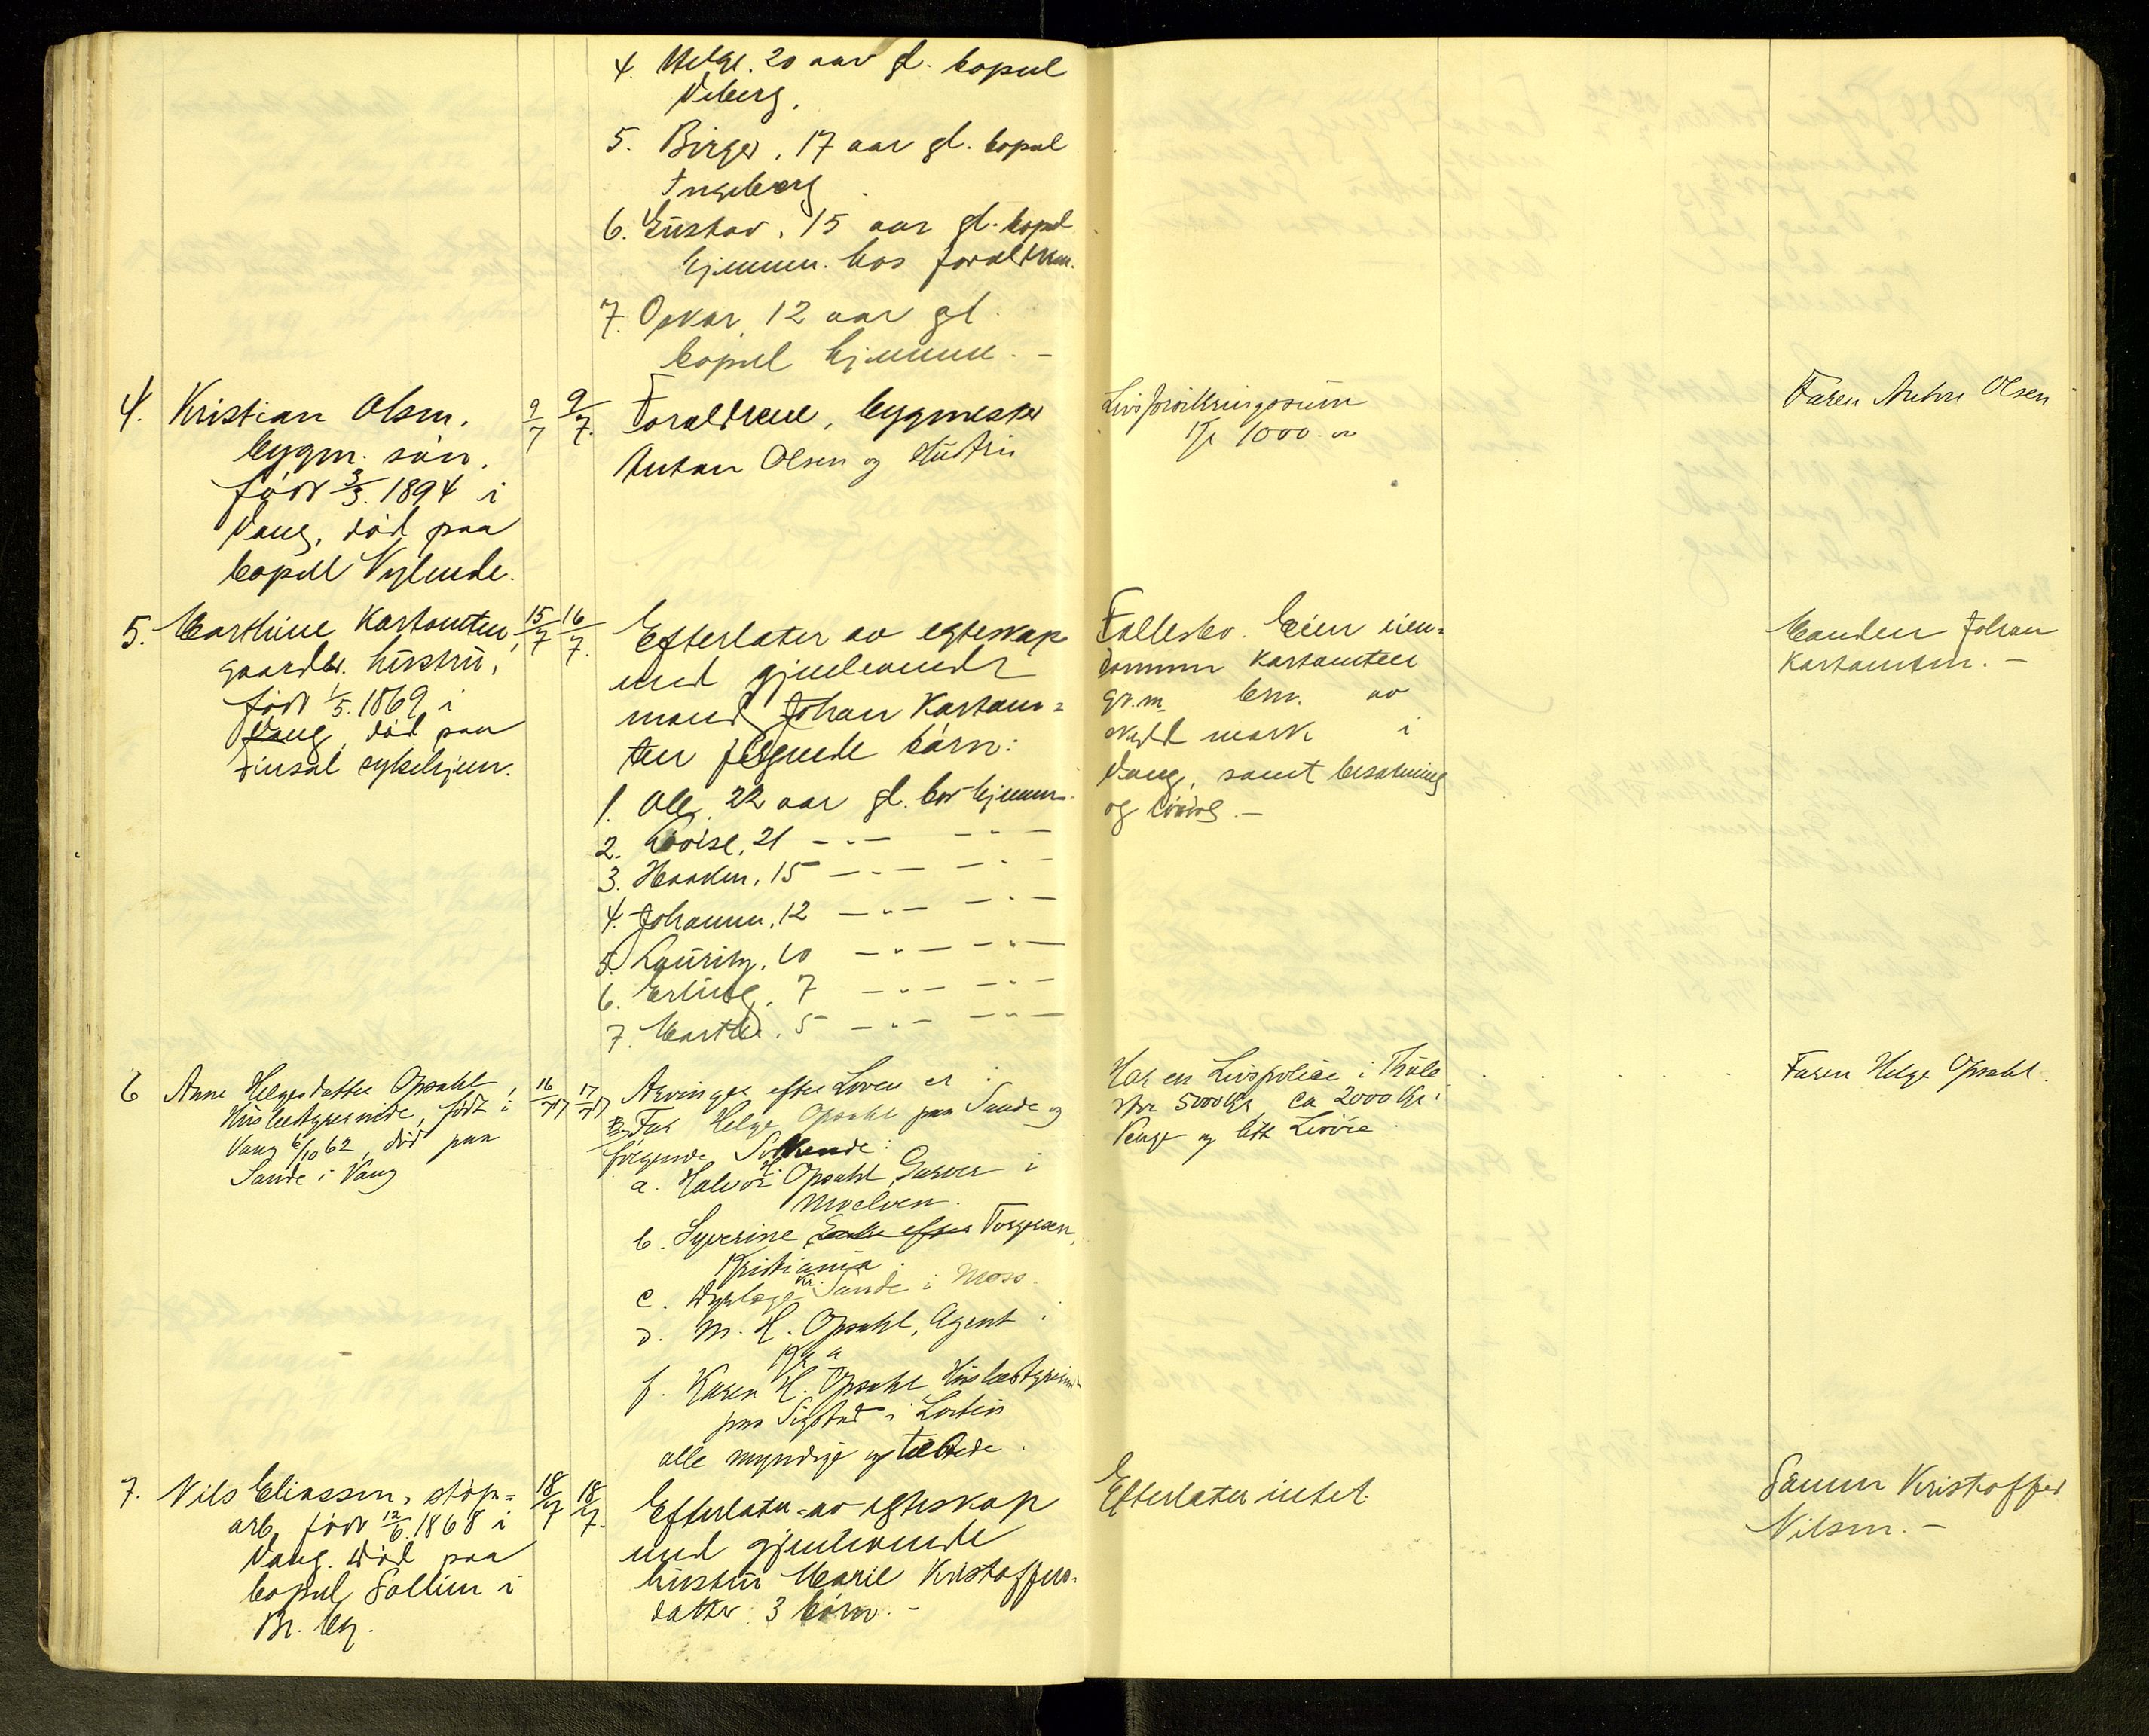 4. Helge. 20 aar gl. bopæl
Viberg.
5. Birger, 17 aar gl. bopæl
Ingeberg
6. Gustav, 15 aar gl. bopæl
hjemme. hos forældrene.
7. Oskar, 12 aar gl.
bopæl hjemme. –
4. Kristian Olsen,
bygm. søn,
født 3/3. 1894 i
Vang, død paa
bopæl Nylende.
9/7
9/7.
Forældrene, bygmester
Anton Olsen og Hustru
Livsforsikringssum
Kr 1000.
Faren Anton Olsen
5. Marthine Kartomten,
gaardbr. hustru,
født 1/5. 1869 i
Vang, død paa
Finsal sykehjem.
15/7
16/7.
Efterlater av egteskap
med gjenlevende
mand Johan Kartom=
ten følgende børn:
1. Ole, 22 aar gl. bor hjemme.
2. Lovise, 21 – " – – " –
3. Haakon, 15 – " – – " –
4. Johanne, 12 – " – – " –
5. Lauritz, 10 – " – – " –
6. Erling, 7 – " – – " –
7. Marthe, 5 – " – – " –
Fællesbo. Eier eien=
dommen Kartomten
gr.nr. brn. av
skyld mark i
Vang, samt besætning
og løsøre. –
Manden Johan
Kartomten. –
6 Anne Helgesdatter Opsahl,
Husbestyrerinde, født i
Vang 6/10 62, død paa
Sande i Vang
16/7 17
17/7 17
Arvinger efter Loven er :
Far Helge Opsahl paa Sande og
følgende Søskende:
a. Halvor H. Opsahl, Garver i
Moelven.
b. Syverine Enke efter Torgersen,
Kristiania.
c. Dyrlæge Kr. Sande i Moss.
d. M. H. Opsahl, Agent i
Kr a
f. Karen H. Opsahl Husbestyrerinde
paa Sigstad i Løiten
alle myndige og tilstede.
Har en Livspolice i Thule
stor 5000 Kr, ca 2000 Kr i
Penge og litt Løsøre.
Faren Helge Opsahl.
7. Nils Eliassen, støp=
arb. født 12/6. 1868 i
Vang. død paa
bopæl Sollien i
Br. bg.
18/7
18/7.
Efterlater av egteskap
med gjenlevende
hustru Marie Kristoffers=
datter 3 børn. –
Efterlater intet.
Sønnen Kristoffer
Nilsen. –